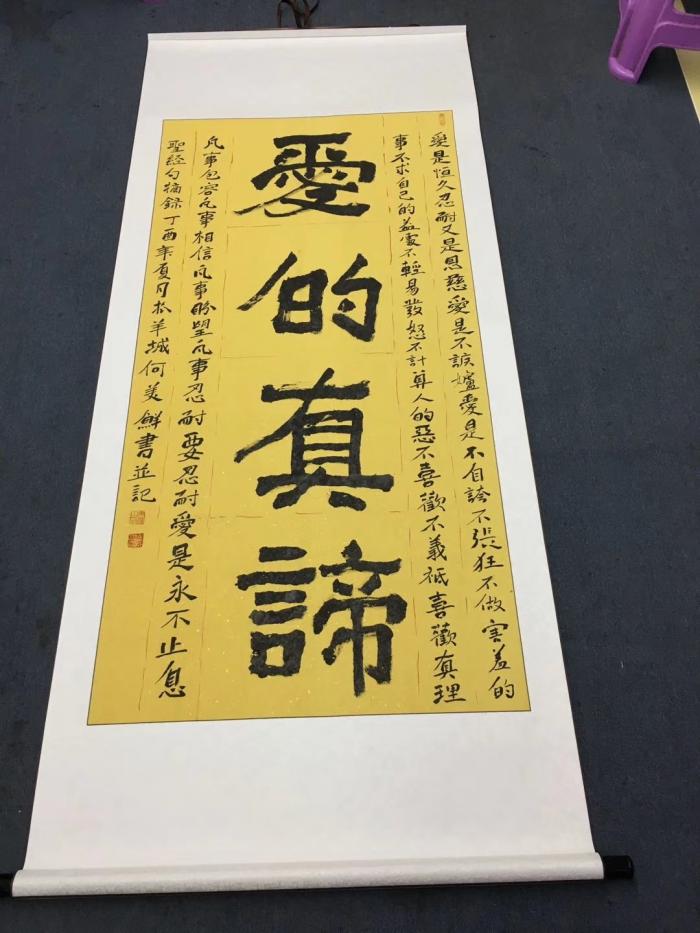 愛是恒久忍耐又是恩慈愛是不嫉妒愛是不自誇不張狂不做害羞的
事不求自己的益處不輕易發怒不計算人的惡不喜歡不義祇喜歡真理
愛的真諦
凡事包容凡事相信凡事盼望凡事忍耐要忍耐愛是永不止息
聖經句摘録丁酉年夏月於羊城何美鮮書並記